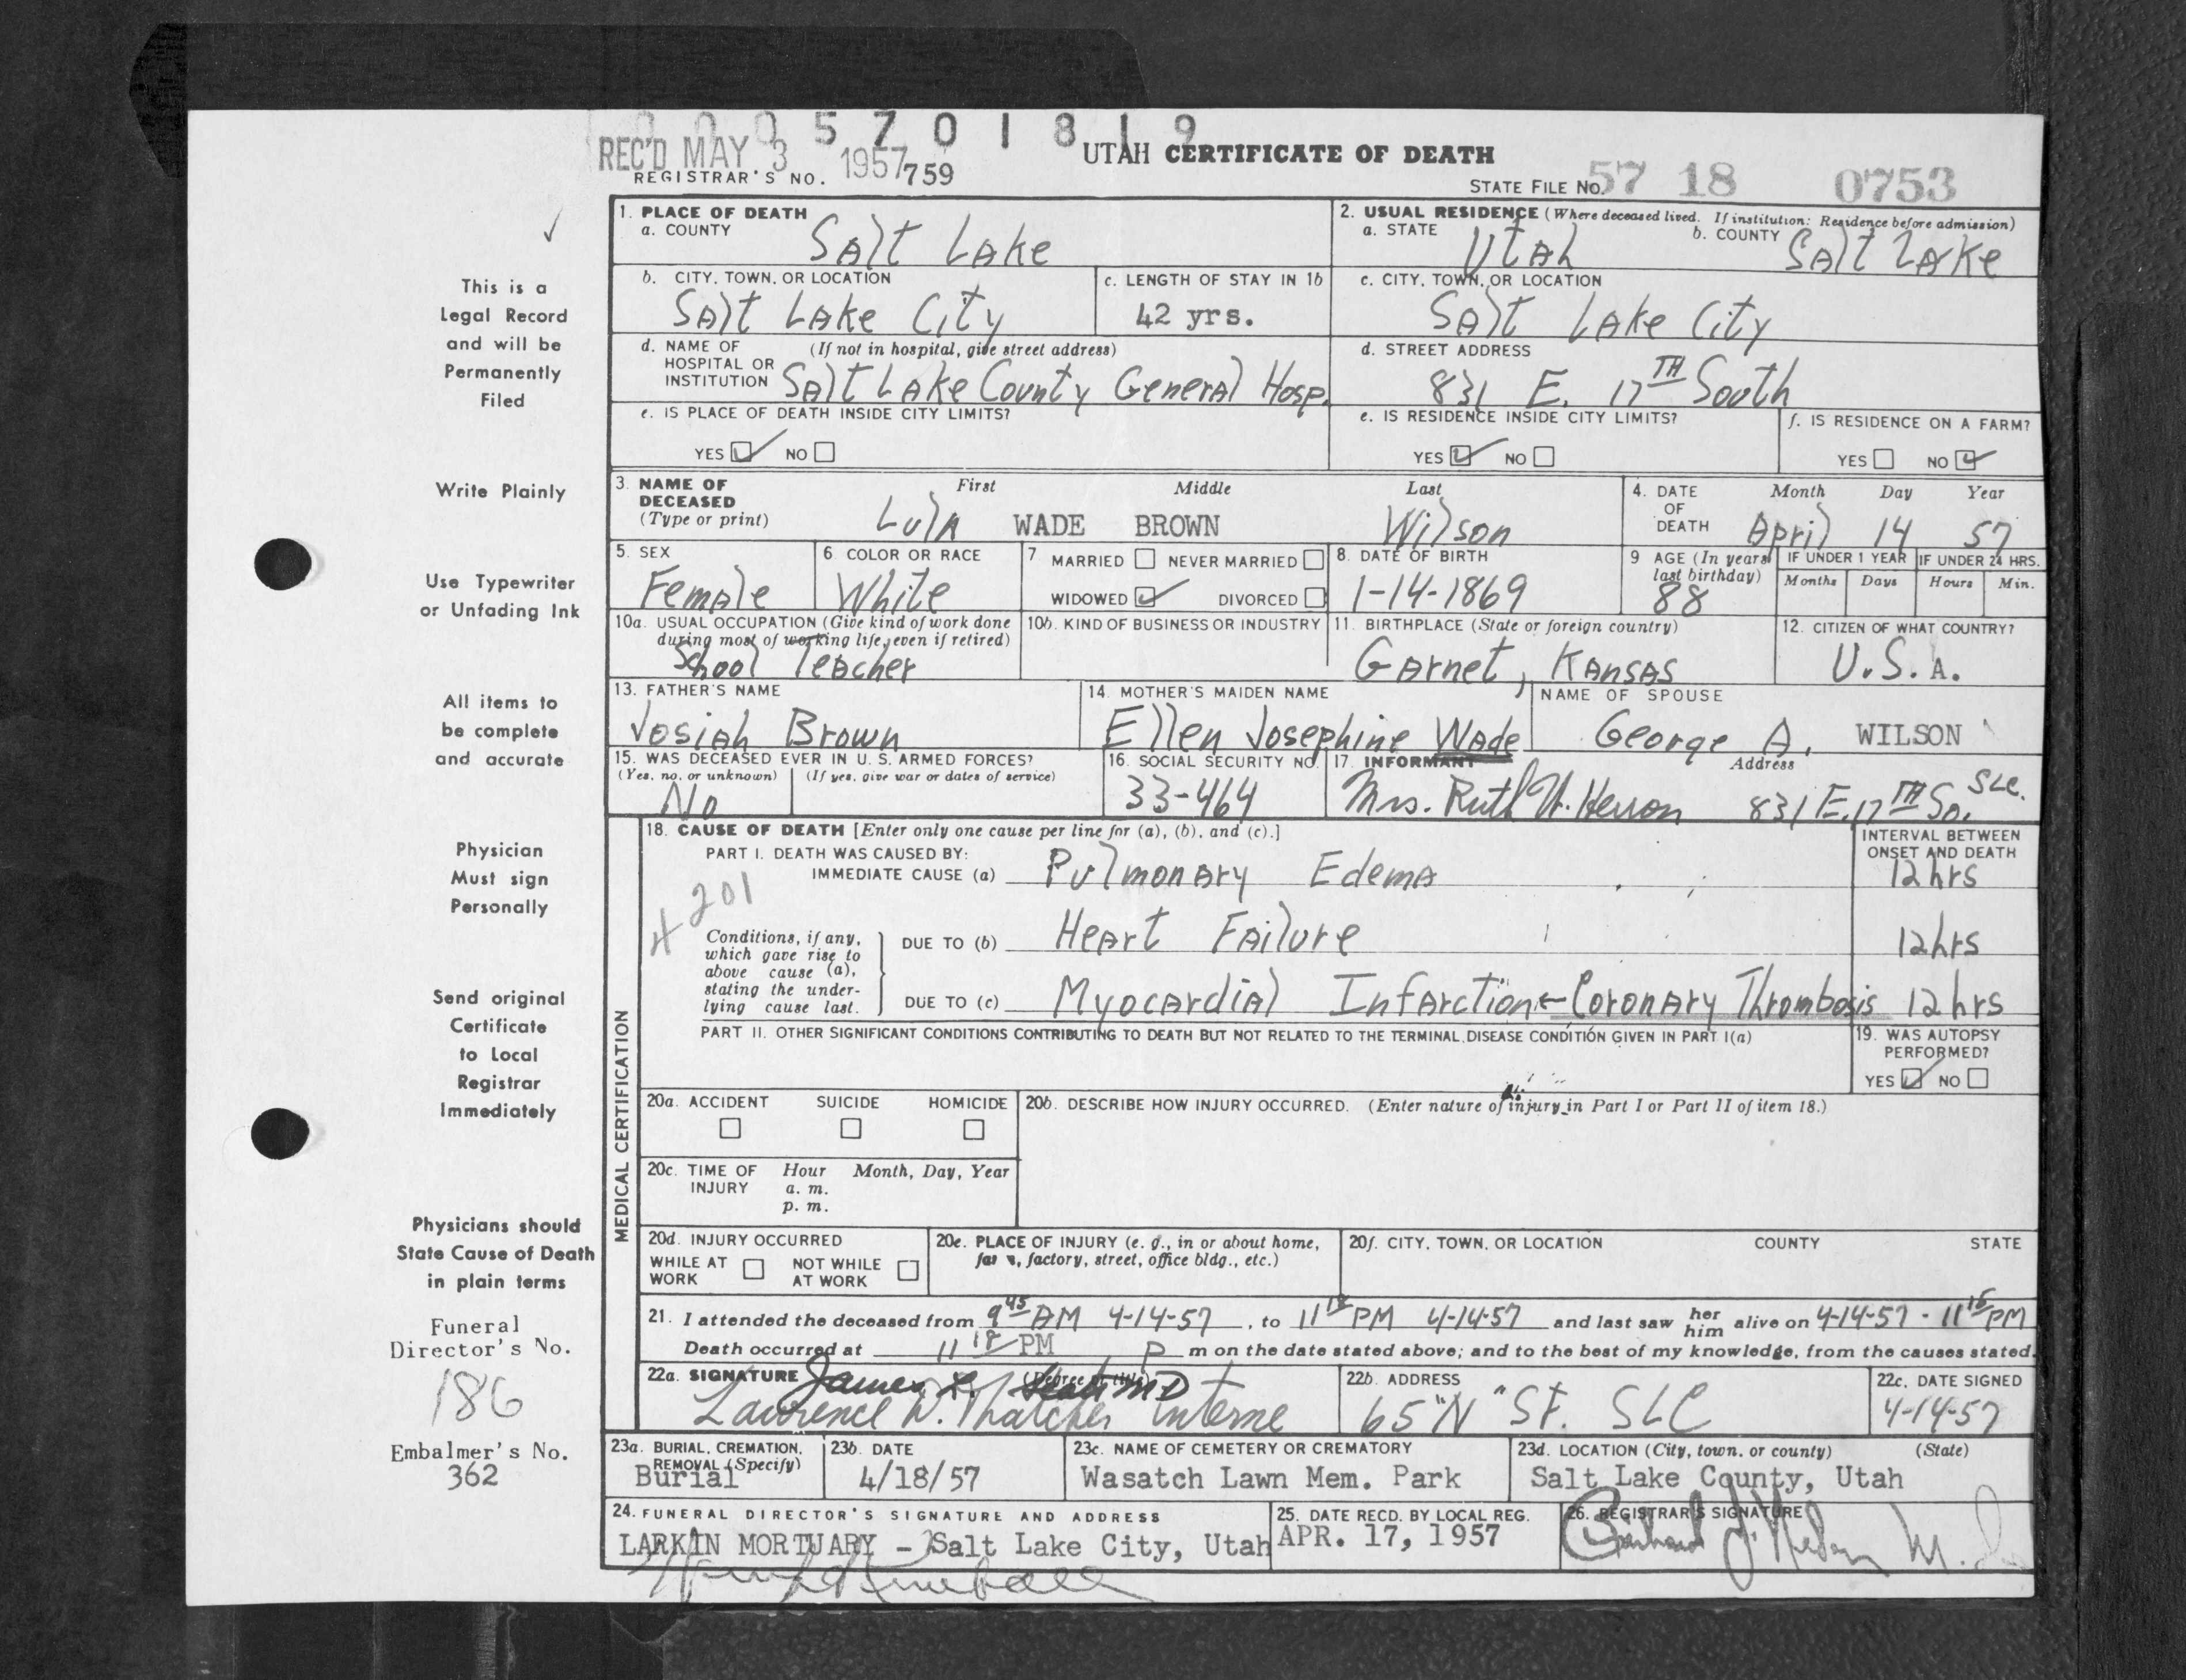 0 0 0 5 7 0 1 8 1 9
REC'D MAY 3 1957
UTAH CERTIFICATE OF DEATH
REGISTRAR'S NO. 759
STATE FILE NO. 57 18 0753
This is a
Legal Record
and will be
Permanently
Filed
Write Plainly
Use Typewriter
or Unfading Ink
All items to
be complete
and accurate
Physician
Must sign
Personally
Send original
Certificate
to Local
Registrar
Immediately
Physicians should
State Cause of Death
in plain terms
Funeral
Director's No.
186
Embalmer's No.
362
1. PLACE OF DEATH
a. COUNTY Salt Lake
2. USUAL RESIDENCE (Where deceased lived. If institution: Residence before admission)
a. STATE Utah b. COUNTY Salt Lake
b. CITY, TOWN, OR LOCATION
Salt Lake City
c. LENGTH OF STAY IN 1b
42 yrs.
c. CITY, TOWN, OR LOCATION
Salt Lake City
d. NAME OF (If not in hospital, give street address)
HOSPITAL OR
INSTITUTION Salt Lake County General Hosp.
d. STREET ADDRESS
831 E. 17TH South
e. IS PLACE OF DEATH INSIDE CITY LIMITS?
YES NO
e. IS RESIDENCE INSIDE CITY LIMITS?
YES NO
f. IS RESIDENCE ON A FARM?
YES NO
3. NAME OF First Middle Last
DECEASED
(Type or print) Lula WADE BROWN Wilson
4. DATE Month Day Year
OF
DEATH April 14 57
5. SEX
Female
6. COLOR OR RACE
White
7 MARRIED NEVER MARRIED
WIDOWED DIVORCED
8. DATE OF BIRTH
1-14-1869
9 AGE (In years
last birthday)
88
IF UNDER 1 YEAR
Months Days
IF UNDER 24 HRS.
Hours Min.
10a. USUAL OCCUPATION (Give kind of work done
during most of working life, even if retired)
School Teacher
10b. KIND OF BUSINESS OR INDUSTRY
11. BIRTHPLACE (State or foreign country)
Garnet, Kansas
12. CITIZEN OF WHAT COUNTRY?
U.S.A.
13. FATHER'S NAME
Josiah Brown
14. MOTHER'S MAIDEN NAME
Ellen Josephine Wade
NAME OF SPOUSE
George A. WILSON
15. WAS DECEASED EVER IN U. S. ARMED FORCES?
(Yes, no, or unknown) (If yes, give war or dates of service)
No
16. SOCIAL SECURITY NO.
33-464
17. INFORMANT Address
Mrs. Ruth W. Herron 831 E. 17TH So. SLC.
MEDICAL CERTIFICATION
18. CAUSE OF DEATH [Enter only one cause per line for (a), (b), and (c).]
INTERVAL BETWEEN
ONSET AND DEATH
PART I. DEATH WAS CAUSED BY:
IMMEDIATE CAUSE (a) Pulmonary Edema 12 hrs
4201
Conditions, if any,
which gave rise to
above cause (a),
stating the under-
lying cause last.
DUE TO (b) Heart Failure 12 hrs
DUE TO (c) Myocardial Infarction ← Coronary Thrombosis 12 hrs
PART II. OTHER SIGNIFICANT CONDITIONS CONTRIBUTING TO DEATH BUT NOT RELATED TO THE TERMINAL DISEASE CONDITION GIVEN IN PART I(a)
19. WAS AUTOPSY
PERFORMED?
YES NO
20a. ACCIDENT SUICIDE HOMICIDE
20b. DESCRIBE HOW INJURY OCCURRED. (Enter nature of injury in Part I or Part II of item 18.)
20c. TIME OF Hour Month, Day, Year
INJURY a. m.
p. m.
20d. INJURY OCCURRED
WHILE AT NOT WHILE
WORK AT WORK
20e. PLACE OF INJURY (e. g., in or about home,
factory, street, office bldg., etc.)
20f. CITY, TOWN, OR LOCATION COUNTY STATE
21. I attended the deceased from 9 45 AM 4-14-57, to 11 18 PM 4-14-57 and last saw her him alive on 4-14-57 - 11 15 PM
Death occurred at 11 18 PM P m on the date stated above; and to the best of my knowledge, from the causes stated.
22a. SIGNATURE James L. MD (Degree or title)
Lawrence W. Thatcher interne
22b. ADDRESS
65 "N" St. SLC
22c. DATE SIGNED
4-14-57
23a. BURIAL, CREMATION,
REMOVAL (Specify)
Burial
23b. DATE
4/18/57
23c. NAME OF CEMETERY OR CREMATORY
Wasatch Lawn Mem. Park
23d. LOCATION (City, town, or county) (State)
Salt Lake County, Utah
24. FUNERAL DIRECTOR'S SIGNATURE AND ADDRESS
LARKIN MORTUARY - Salt Lake City, Utah
25. DATE RECD. BY LOCAL REG.
APR. 17, 1957
26. REGISTRAR'S SIGNATURE